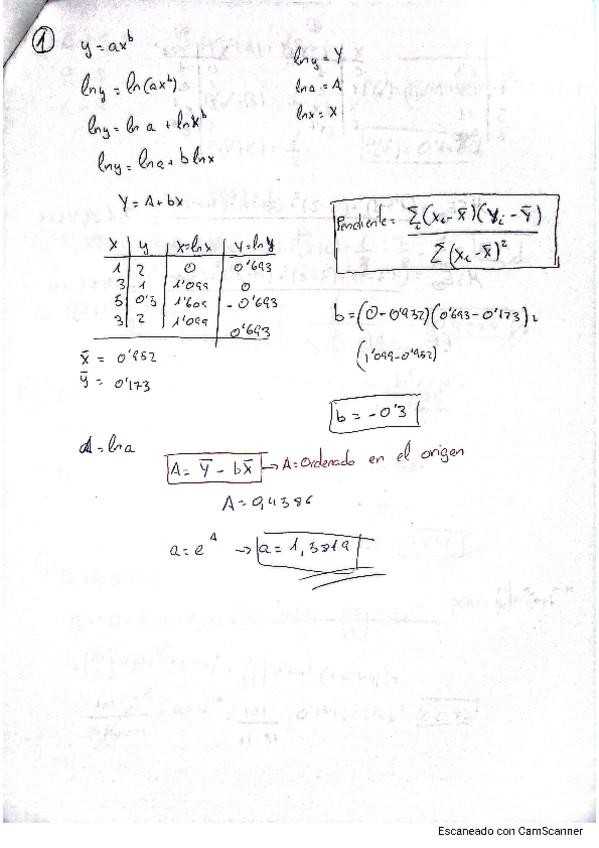 1
y = ax^b
ln y = ln(ax^b)
ln y = ln a + ln x^b
ln y = ln a + b ln x
Y = A + bx
ln y = Y
ln a = A
ln x = X
Pendiente = Σi(xi - x̄)(Yi - Ȳ) / Σ(xi - x̄)²
x y X=lnx Y=lny
1 2 0 0'693
3 1 1'099 0
5 0'3 1'609 -0'693
3 2 1'099 0'693
x̄ = 0'952
ȳ = 0'173
b = (0-0'952)(0'693-0'173)
(1'099-0'952)
b = -0'3
A = ln a
A = Ȳ - bX̄ → A = Ordenado en el origen
A = 0,4386
a = e^A → a = 1,3819
Escaneado con CamScanner